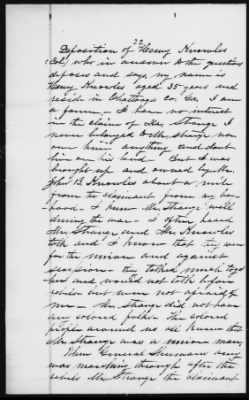 22
Deposition of Henry Knowles
(Col) who in answer to the questions
deposes and says, my name is
Henry Knowles aged 35 years and
reside in Chattooga Co. Ga. I am
a farmer, I have no interest
in the claim of Mr Strange. I
never belonged to Mr Strange nor
owe him anything and dont
live on his land. But I was
brought up and owned by Mr.
John B. Knowles about a mile
from the claimant from my boy-
hood. I knew Mr Strange well
during the war. I often heard
Mr Strange and Mr Knowles
talk and I know that they were
for the union and against
secession. they talked much together
and would not talk before
others but were not afraid of
me. Mr Strange did not have
any colored folks. The colored
people around us all knew that
Mr Strange was a union man,
When General Shermans army
was marching through after the
rebels Mr Strange the claimant